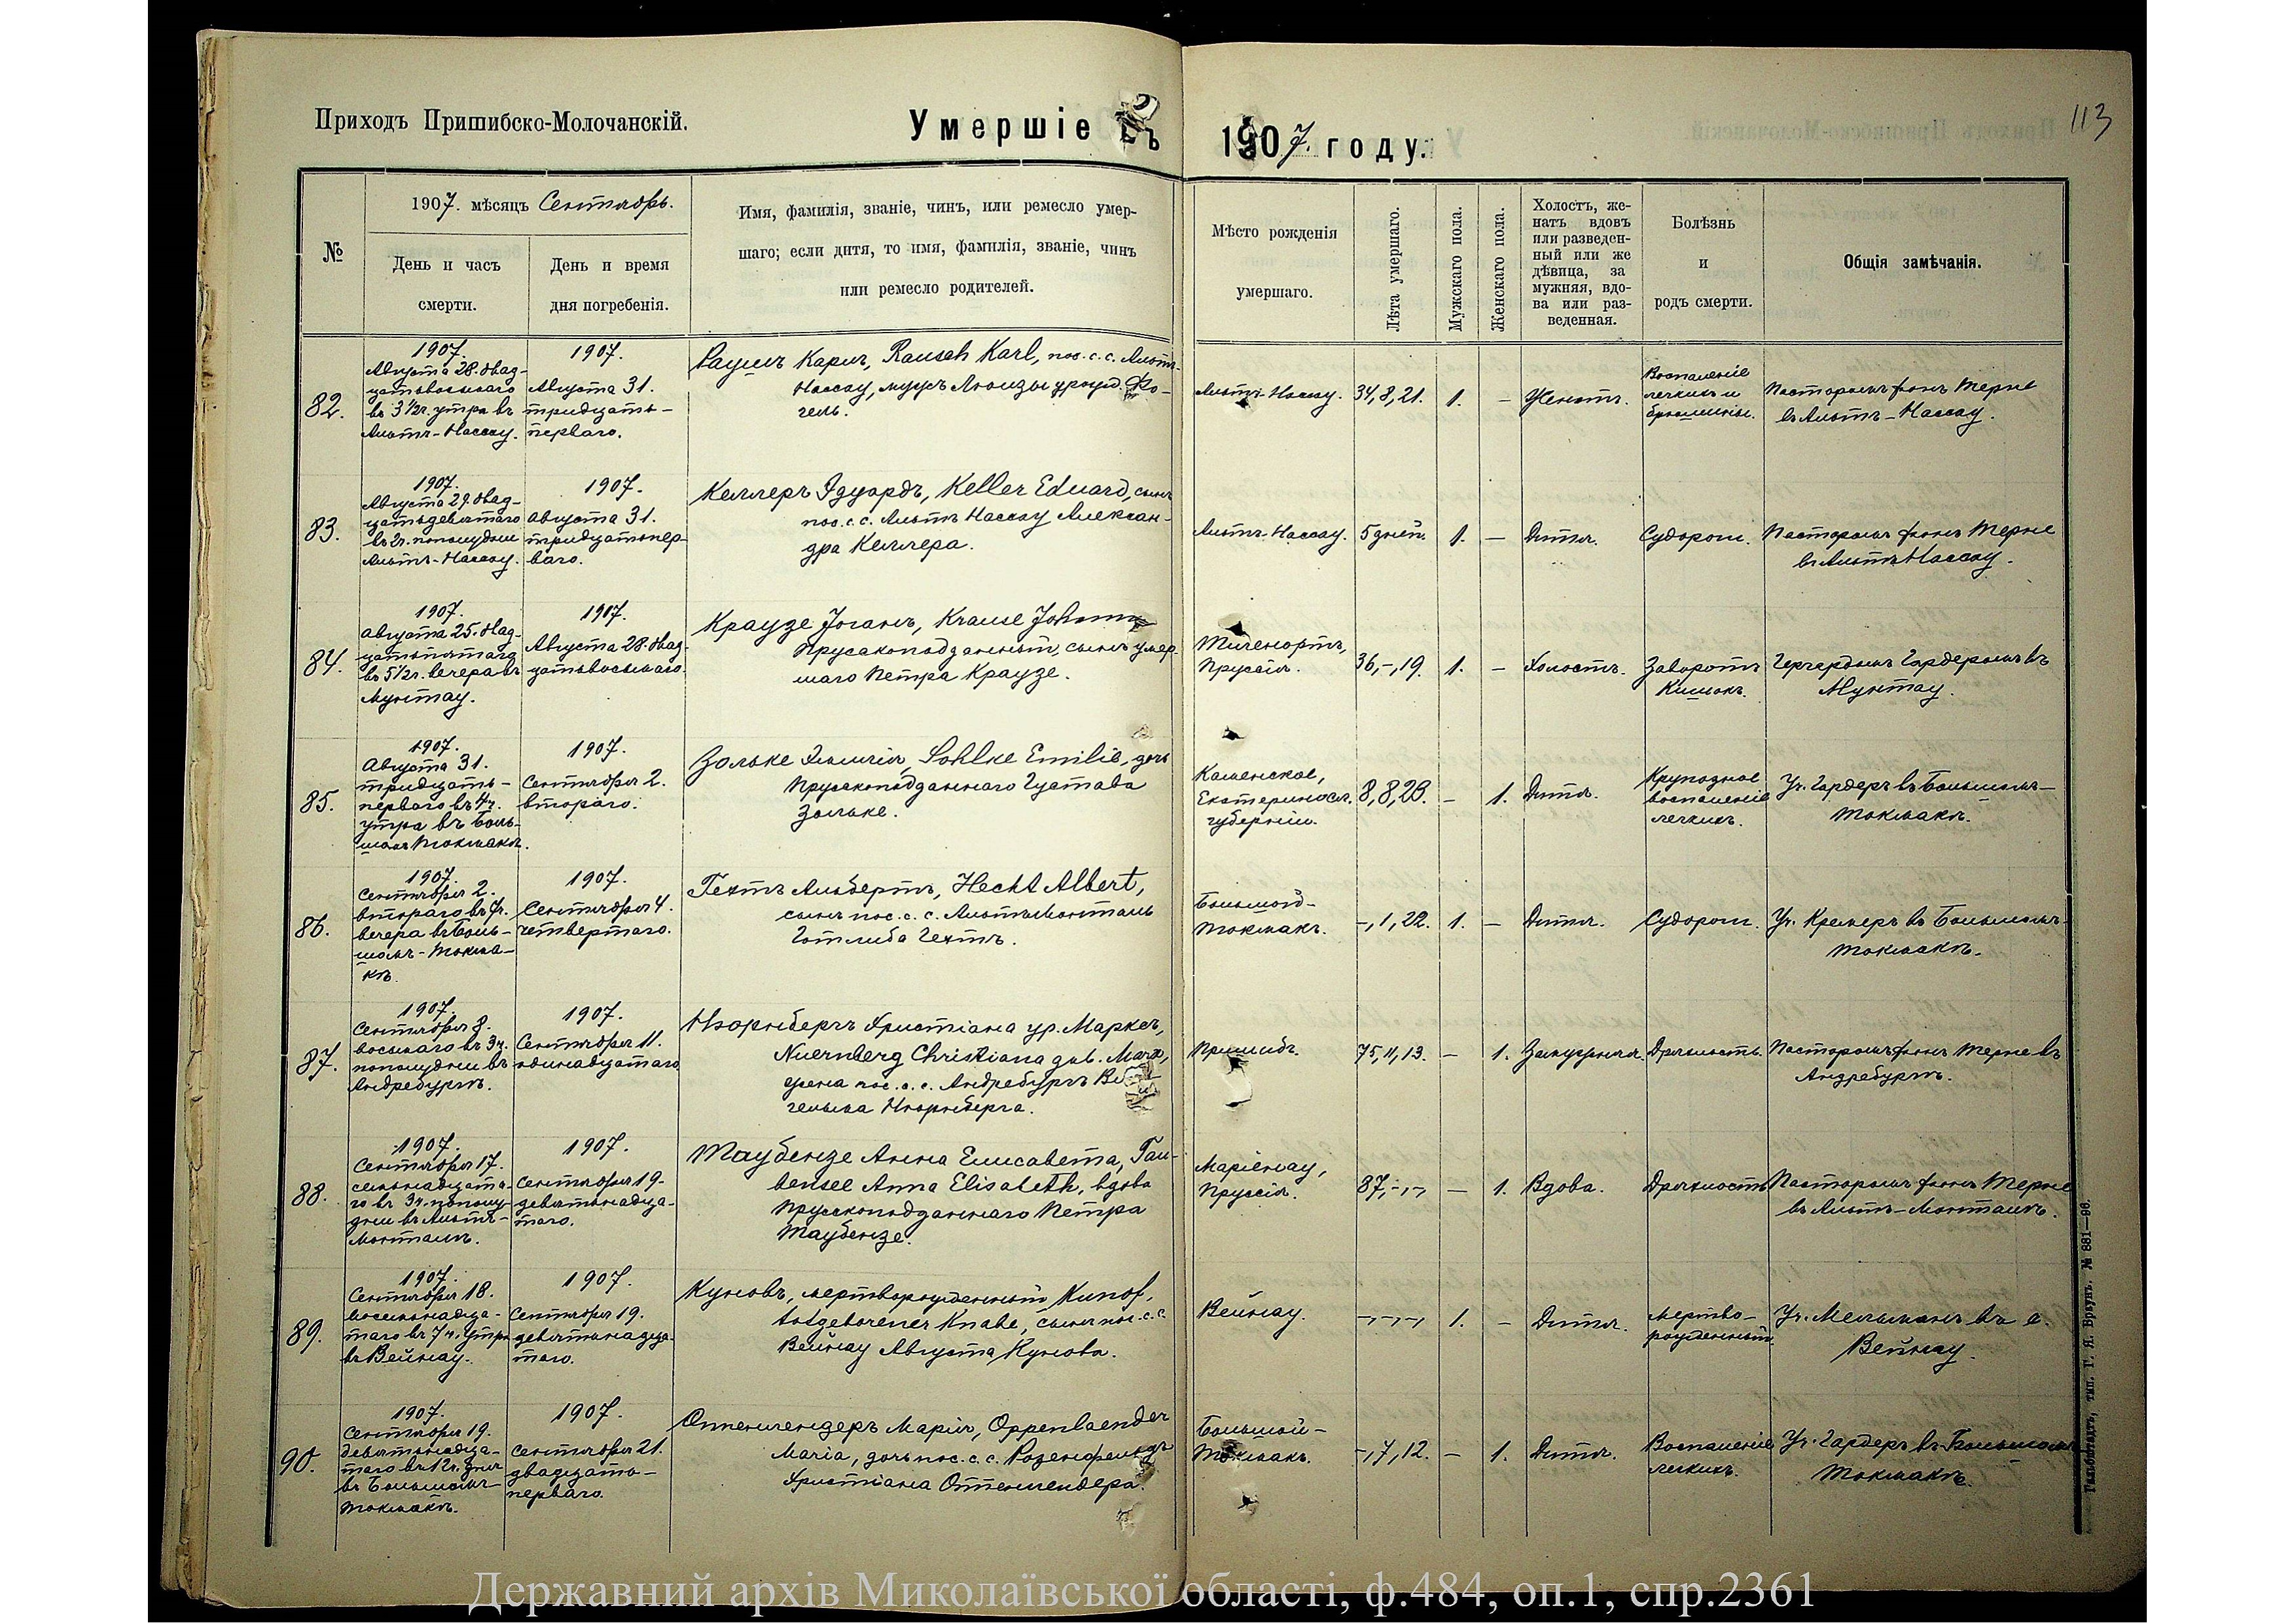 Приходъ Пришибско-Молочанскій.
Умершіе въ
1907. году.
113
№
1907. мѣсяцъ Сентябрь.
День и часъ
смерти.
День и время
дня погребенія.
Имя, фамилія, званіе, чинъ, или ремесло умер-
шаго; если дитя, то имя, фамилія, званіе, чинъ
или ремесло родителей.
Мѣсто рожденія
умершаго.
Лѣта умершаго.
Мужскаго пола.
Женскаго пола.
Холостъ, же-
натъ вдовъ
или разведен-
ный или же
дѣвица, за
мужняя, вдо-
ва или раз-
веденная.
Болѣзнь
и
родъ смерти.
Общія замѣчанія.
82.
1907.
Августа 28. двад-
цатьвосьмаго
въ 3 1/2 ч. утра въ
Альтъ-Нассау.
1907.
Августа 31.
тридцать-
перваго.
Раушъ Карлъ, Rausch Karl, пос. с. с. Альтъ-
Нассау, мужъ Люизы урожд. Фо-
гель.
Альтъ-Нассау.
34,8,21.
1.
-
Женатъ.
Воспаленіе
легкихъ и
брюшины.
Пасторомъ фонъ Терне
въ Альтъ-Нассау.
83.
1907.
Августа 29. двад-
цатьдевятаго
въ 2 ч. пополудни
Альтъ-Нассау.
1907.
Августа 31.
тридцатьпер-
ваго.
Келлеръ Эдуардъ, Keller Eduard, сынъ
пос. с. с. Альтъ Нассау Алексан-
дра Келлера.
Альтъ-Нассау.
5 дней.
1.
-
Дитя.
Судороги.
Пасторомъ фонъ Терне
въ Альтъ Нассау.
84.
1907.
Августа 25. двад-
цатьпятаго
въ 5 1/2 ч. вечера въ
Мунтау.
1907.
Августа 28. двад-
цатьвосьмаго.
Краузе Іоганъ, Krause Johann
Прусскоподданный, сынъ умер-
шаго Петра Краузе.
Пруссія.
36,-,19.
1.
-
Холостъ.
Заворотъ
Кишокъ.
Гергардомъ Гардеромъ въ
Мунтау.
85.
1907.
Августа 31.
тридцать-
перваго въ 4 ч.
утра въ Боль-
шомъ Токмакѣ.
1907.
Сентября 2.
втораго.
Зольке Эмилія, Sohlke Emilie, дочь
Прусскоподданнаго Густава
Зольке.
Каменское,
Екатериносл.
губерніи.
8,8,23.
-
1.
Дитя.
Крупозное
воспаленіе
легкихъ.
Уч. Гардеръ въ Большомъ-
Токмакѣ.
86.
1907.
Сентября 2.
втораго въ 9 ч.
вечера въ Боль-
шомъ-Токма-
кѣ.
1907.
Сентября 4.
четвертаго.
Гехтъ Альбертъ, Hecht Albert,
сынъ пос. с. с. АльтъМонталь
Готлиба Гехтъ.
Большой-
Токмакъ.
-,1,22.
1.
-
Дитя.
Судороги.
Уч. Кремеръ въ Большомъ-
Токмакѣ.
87.
1907.
Сентября 8.
восьмаго въ 3 ч.
пополудни въ
Андребургъ.
1907.
Сентября 11.
одинадцатаго.
Нюрнбергъ Христіана ур. Марксъ,
Nuernberg Christiana geb. Marx,
жена пос. с. с. Андребургъ
гельма Нюрнберга.
Пришибъ.
75,11,13.
-
1.
Замужняя.
Дряхлость.
Пасторомъ фонъ Терне въ
Андребургъ.
88.
1907.
Сентября 17.
семьнадцата-
го въ 3 ч. пополу-
дни въ Альтъ-
Монталѣ.
1907.
Сентября 19.
девятьнадца-
таго.
Таубензе Анна Елисавета, Tau-
bensee Anna Elisabeth, вдова
Прусскоподданнаго Петра
Таубензе.
Маріенау,
Пруссія.
87,-,-,
-
1.
Вдова.
Дряхлость
Пасторомъ фонъ Терне
въ Альтъ-Монталѣ.
89.
1907.
Сентября 18.
восемьнадца-
таго въ 7 ч. утра
въ Вейнау.
1907.
Сентября 19.
девятьнадца-
таго.
Куновъ, мертворожденный Kunof,
totgeborener Knabe, сынъ пос. с. с.
Вейнау Августа Кунова.
Вейнау.
-,-,-,
1.
-
Дитя.
Мертво-
рожденный.
Уч. Мельманъ въ с.
Вейнау.
90.
1907.
Сентября 19.
девятьнадца-
таго въ 12 ч. дня
въ Большомъ-
Токмакѣ.
1907.
Сентября 21.
двадцать-
перваго.
Оппенлендеръ Марія, Oppenlaender
Maria, дочь пос. с. с. Розенфельдъ
Христіана Оппенлендера.
Большой-
Токмакъ.
-,7,12.
-
1.
Дитя.
Воспаленіе
легкихъ.
Уч. Гардеръ въ Большомъ
Токмакѣ.
Гальбштадтъ, тип. Г. Я. Браунъ. № 881—96.
Державний архів Миколаївської області, ф.484, оп.1, спр.2361